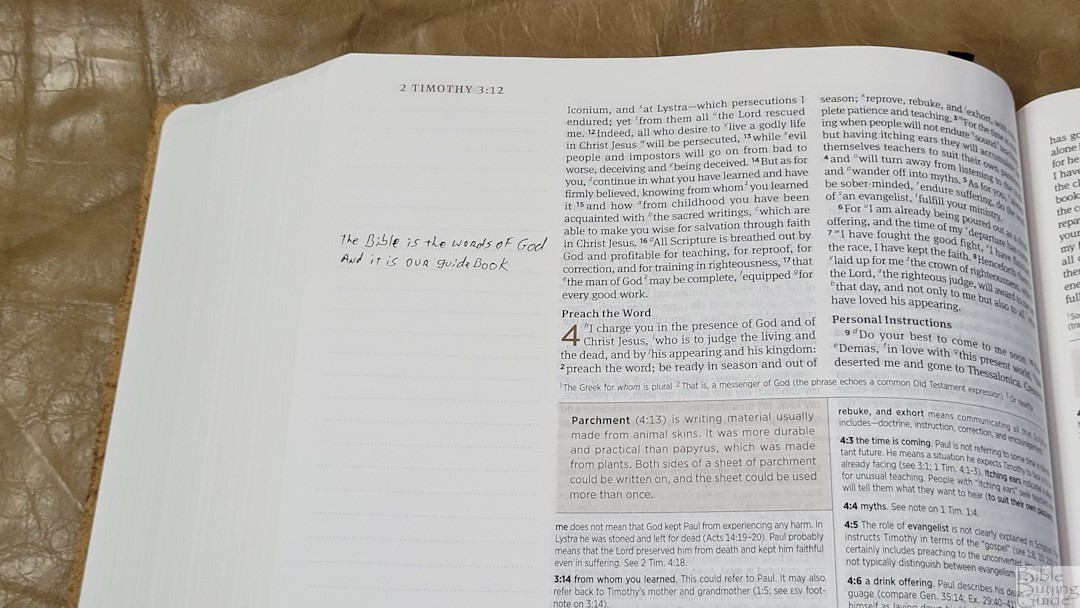 2 TIMOTHY 3:12
The Bible is the words of God
And it is our guide Book
Iconium, and ˢat Lystra—which persecutions I
endured; yet ᵗfrom them all ᵘthe Lord rescued
me. ¹²Indeed, all who desire to ᵛlive a godly life
in Christ Jesus ʷwill be persecuted, ¹³while ˣevil
people and impostors will go on from bad to
worse, deceiving and ʸbeing deceived. ¹⁴But as for
you, ᶻcontinue in what you have learned and have
firmly believed, knowing from whom¹ you learned
it ¹⁵and how ᵃfrom childhood you have been
acquainted with ᵇthe sacred writings, ᶜwhich are
able to make you wise for salvation through faith
in Christ Jesus. ¹⁶ᵈAll Scripture is breathed out by
God and profitable for teaching, for reproof, for
correction, and for training in righteousness, ¹⁷that
ᵉthe man of God² may be complete, ᶠequipped ᵍfor
every good work.
Preach the Word
4 ʰI charge you in the presence of God and of
Christ Jesus, ⁱwho is to judge the living and
the dead, and by ʲhis appearing and his kingdom:
²preach the word; be ready in season and out of
season; ᵏreprove, rebuke, and ˡexhort, with
plete patience and teaching. ³ᵐFor the time
ing when people will not endure ⁿsound
but having itching ears they will accumulate
themselves teachers to suit their own
⁴and ᵒwill turn away from listening to the
and ᵖwander off into myths. ⁵As for you,
be sober-minded, ʳendure suffering, do the
of ˢan evangelist, ᵗfulfill your ministry.
⁶For ᵘI am already being poured out as a
offering, and the time of my ᵛdeparture
⁷ʷI have fought the good fight, ˣI have
the race, I have kept the faith. ⁸Henceforth
ʸlaid up for me ᶻthe crown of righteousness,
the Lord, ᵃthe righteous judge, will award to
ᵇthat day, and not only me but also to all
have loved his appearing.
Personal Instructions
⁹ᵈDo your best to come to me soon.
ᵉDemas, ᶠin love with ᵍthis present world,
deserted me and gone to Thessalonica.
¹The Greek for whom is plural ²That is, a messenger of God (the phrase echoes a common Old Testament expression) ³Or healthy
Parchment (4:13) is writing material usually
made from animal skins. It was more durable
and practical than papyrus, which was made
from plants. Both sides of a sheet of parchment
could be written on, and the sheet could be used
more than once.
me does not mean that God kept Paul from experiencing any harm. In
Lystra he was stoned and left for dead (Acts 14:19–20). Paul probably
means that the Lord preserved him from death and kept him faithful
even in suffering. See 2 Tim. 4:18.
3:14 from whom you learned. This could refer to Paul. It may also
refer back to Timothy's mother and grandmother (1:5; see ESV foot-
note on 3:14).
rebuke, and exhort means communicating all that
includes—doctrine, instruction, correction, and encouragement.
4:3 the time is coming. Paul is not referring to some time in the
tant future. He means a situation he expects Timothy to face
already facing (see 3:1; 1 Tim. 4:1–3). Itching ears indicates a
for unusual teaching. People with "itching ears" seek
will tell them what they want to hear (to suit their own passions)
4:4 myths. See note on 1 Tim. 1:4.
4:5 The role of evangelist is not clearly explained in Scripture.
instructs Timothy in terms of the "gospel" (see 1:8,
certainly includes preaching to the unconverted
not typically distinguish between evangelism
4:6 a drink offering. Paul describes his
guage (compare Gen. 35:14; Ex. 29:40
himself as laying down his
has go
alone
for he
I have
the cl
book
the c
repa
your
my f
all
then
ene
full
Bible
Buying
Guide